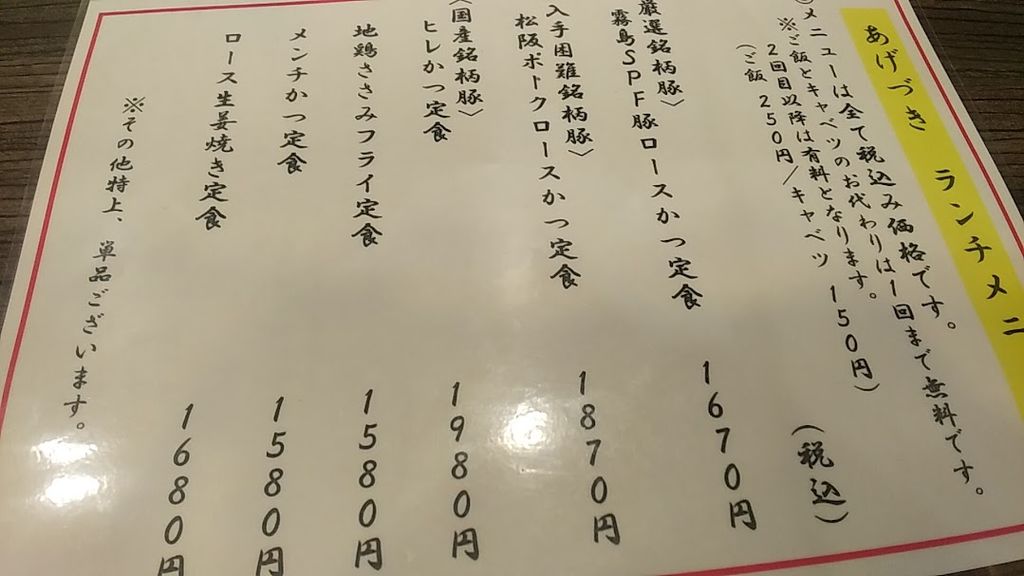 あげづき ランチメニ
メニューは全て税込み価格です。
※ご飯とキャベツのお代わりは1回まで無料です。
2回目以降は有料となります。
(ご飯 250円/キャベツ 150円)
(税込)
厳選銘柄豚〉
霧島SPF豚ロースかつ定食 1670円
入手困難銘柄豚〉
松阪ポークロースかつ定食 1870円
〈国産銘柄豚〉
ヒレかつ定食 1980円
地鶏ささみフライ定食 1580円
メンチかつ定食 1580円
ロース生姜焼き定食 1680円
※その他特上、単品ございます。